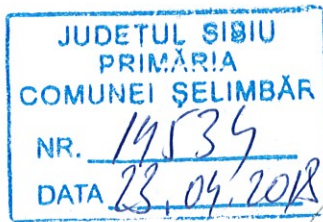 JUDEȚUL SIBIU
PRIMĂRIA
COMUNEI ȘELIMBĂR
NR. 14534
DATA 23.04.2018